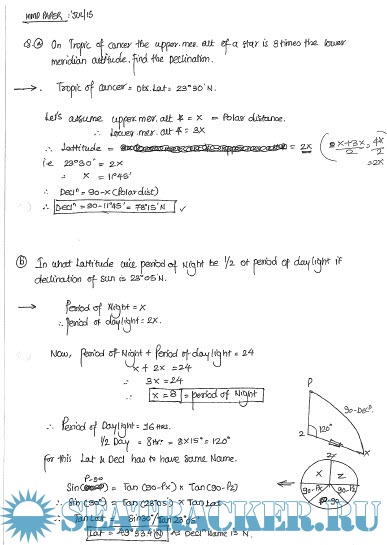 MMD PAPER : JUL/15
Q.② ⓐ On Tropic of cancer the upper mer. alt of a star is 3 times the lower
meridian altitude. Find the Declination.
→. Tropic of cancer = Obs. Lat = 23°30'N.
Let's assume upper mer. alt * = x = Polar distance.
∴ Lower mer. alt * = 3x
∴ Lattitude = = 2x ( x+3x/2 = 4x/2
= 2x
i.e 23°30' = 2x
∴ x = 11°45'
∴ Decln = 90-x (Polar dist)
∴ Decln = 90-11°45' = 78°15'N ✓
ⓑ In what Lattitude will period of Night be 1/2 of period of daylight if
declination of sun is 23°05'N.
→ Period of Night = x
∴ Period of daylight = 2x.
Now, Period of Night + Period of daylight = 24
x + 2x = 24
∴ 3x = 24
∴ x = 8 = period of Night
∴ Period of Daylight = 16 Hrs.
1/2 Day = 8Hr = 8x15° = 120°
For this Lat & Decl has to have Same Name.
P
90-Decl
120°
Z
X
P-90
Sin( ) = Tan (90-Px) x Tan (90-Pz)
∴ Sin (30°) = Tan (23°05') x Tan Lat
∴ Tan Lat = Sin30 / Tan 23°05'
Lat = 49°33.4 N As Decl Name is N.
Z
X Z
90-Px 90-Pz
P-90
SEATRACKER.RU